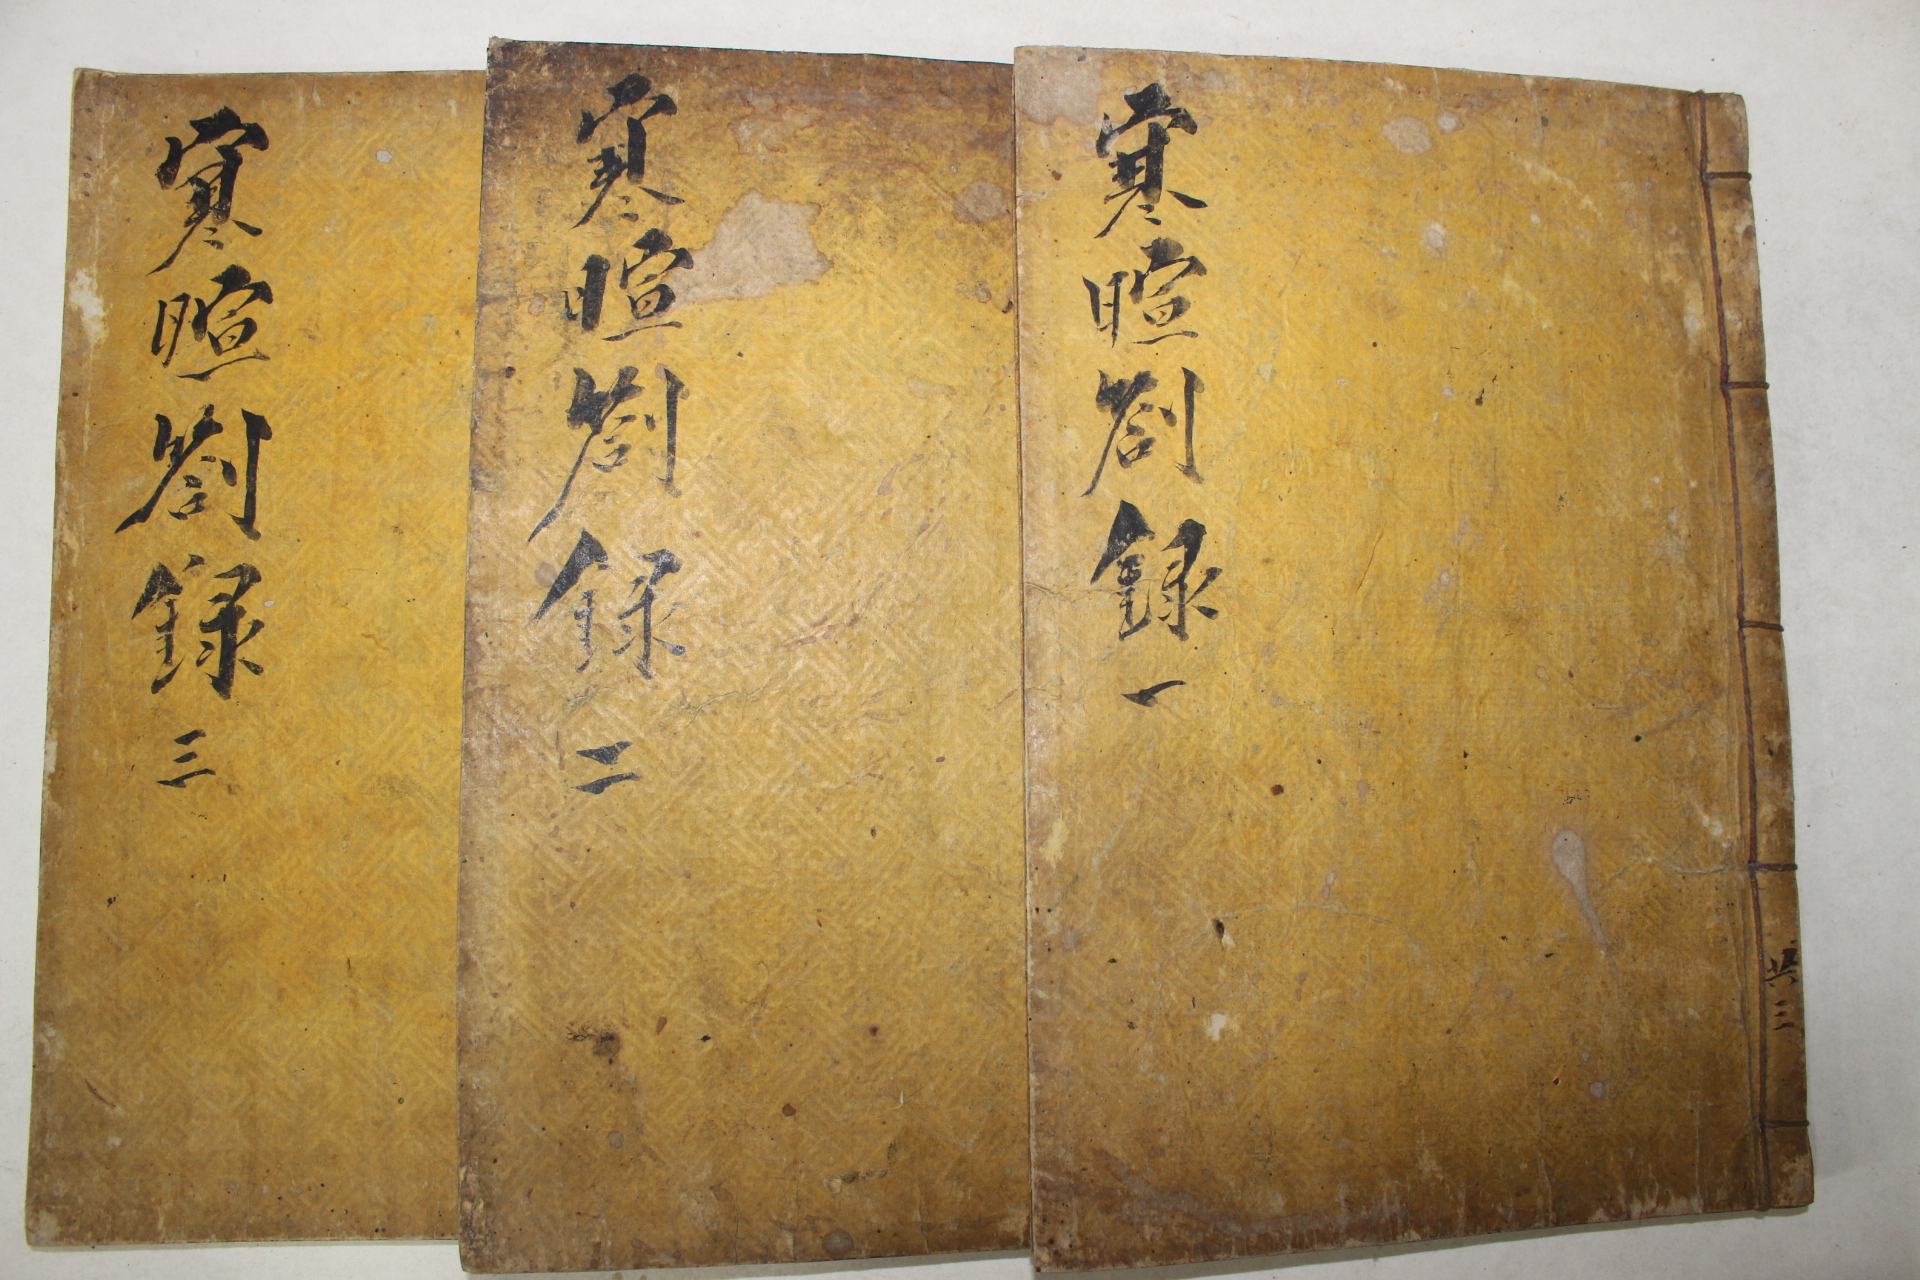 寒暄劄錄 一
共三
寒暄劄錄 二
寒暄劄錄 三